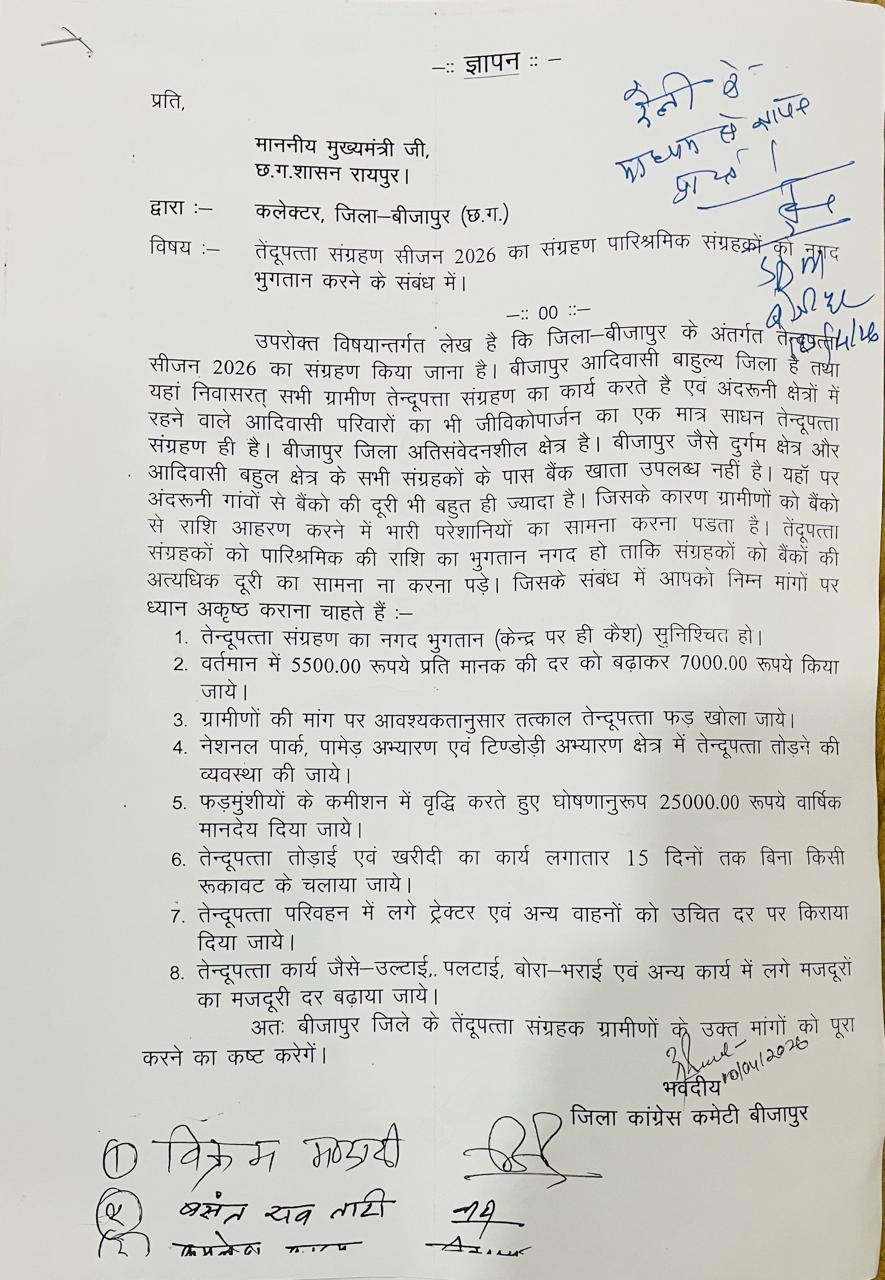 –:: ज्ञापन :: –
रैली के
माध्यम से ज्ञापन
प्राप्त ।
प्रति,
माननीय मुख्यमंत्री जी,
छ.ग.शासन रायपुर।
द्वारा :– कलेक्टर, जिला–बीजापुर (छ.ग.)
SDM
बीजापुर
विषय :– तेंदूपत्ता संग्रहण सीजन 2026 का संग्रहण पारिश्रमिक संग्रहकों को नगद
भुगतान करने के संबंध में।
–:: 00 ::–
उपरोक्त विषयान्तर्गत लेख है कि जिला–बीजापुर के अंतर्गत तेन्दूपत्ता
सीजन 2026 का संग्रहण किया जाना है। बीजापुर आदिवासी बाहुल्य जिला है तथा
यहां निवासरत् सभी ग्रामीण तेन्दूपत्ता संग्रहण का कार्य करते है एवं अंदरूनी क्षेत्रों में
रहने वाले आदिवासी परिवारों का भी जीविकोपार्जन का एक मात्र साधन तेन्दूपत्ता
संग्रहण ही है। बीजापुर जिला अतिसंवेदनशील क्षेत्र है। बीजापुर जैसे दुर्गम क्षेत्र और
आदिवासी बहुल क्षेत्र के सभी संग्रहकों के पास बैंक खाता उपलब्ध नहीं है। यहॉ पर
अंदरूनी गांवों से बैंको की दूरी भी बहुत ही ज्यादा है। जिसके कारण ग्रामीणों को बैंको
से राशि आहरण करने में भारी परेशानियों का सामना करना पडता है। तेंदूपत्ता
संग्रहकों को पारिश्रमिक की राशि का भुगतान नगद हो ताकि संग्रहकों को बैंकों की
अत्यधिक दूरी का सामना ना करना पड़े। जिसके संबंध में आपको निम्न मांगों पर
ध्यान अकृष्ठ कराना चाहते हैं :–
1. तेन्दूपत्ता संग्रहण का नगद भुगतान (केन्द्र पर ही कैश) सुनिश्चित हो।
2. वर्तमान में 5500.00 रूपये प्रति मानक की दर को बढ़ाकर 7000.00 रूपये किया
जाये।
3. ग्रामीणों की मांग पर आवश्यकतानुसार तत्काल तेन्दूपत्ता फड़ खोला जाये।
4. नेशनल पार्क, पामेड़ अभ्यारण एवं टिण्डोड़ी अभ्यारण क्षेत्र में तेन्दूपत्ता तोड़ने की
व्यवस्था की जाये।
5. फड़मुंशीयों के कमीशन में वृद्धि करते हुए घोषणानुरूप 25000.00 रूपये वार्षिक
मानदेय दिया जाये।
6. तेन्दूपत्ता तोड़ाई एवं खरीदी का कार्य लगातार 15 दिनों तक बिना किसी
रूकावट के चलाया जाये।
7. तेन्दूपत्ता परिवहन में लगे ट्रेक्टर एवं अन्य वाहनों को उचित दर पर किराया
दिया जाये।
8. तेन्दूपत्ता कार्य जैसे–उल्टाई,. पलटाई, बोरा–भराई एवं अन्य कार्य में लगे मजदूरों
का मजदूरी दर बढ़ाया जाये।
अतः बीजापुर जिले के तेंदूपत्ता संग्रहक ग्रामीणों के उक्त मांगों को पूरा
करने का कष्ट करेगें।
10/04/2026
भवदीय
जिला कांग्रेस कमेटी बीजापुर
① विक्रम मण्डावी
② बसंत राव ताटी